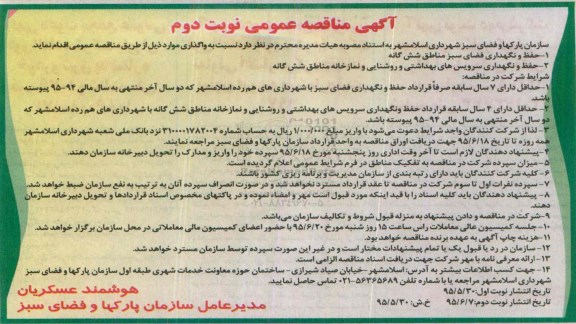 آگهی مناقصه عمومی نوبت دوم
سازمان پارکها و فضای سبز شهرداری اسلامشهر به استناد مصوبه هیات مدیره محترم در نظر دارد نسبت به واگذاری موارد ذیل از طریق مناقصه عمومی اقدام نماید.
۱-حفظ و نگهداری فضای سبز مناطق شش گانه
۲-حفظ و نگهداری سرویس های بهداشتی و روشنایی و نمازخانه مناطق شش گانه
شرایط شرکت در مناقصه:
۱-حداقل دارای ۷ سال سابقه صرفاً قرارداد حفظ و نگهداری فضای سبز با شهرداری های هم رده اسلامشهر که دو سال آخر منتهی به سال مالی ۹۴-۹۵ پیوسته
باشد.
۲-حداقل دارای ۴ سال سابقه قرارداد حفظ ونگهداری سرویس های بهداشتی و روشنایی و نمازخانه مناطق شش گانه با شهرداری های هم رده اسلامشهر که
دو سال آخر منتهی به سال مالی ۹۴-۹۵ پیوسته باشد.
۳-لذا از شرکت کنندگان واجد شرایط دعوت می‌شود با واریز مبلغ ۱/۰۰۰/۰۰۰ ریال به حساب شماره ۳۱۰۰۰۰۱۷۸۲۰۰۴ نزد بانک ملی شعبه شهرداری اسلامشهر
همه روزه تا تاریخ ۹۵/۶/۱۸ جهت دریافت اوراق مناقصه به واحد قرارداد سازمان پارکها و فضای سبز مراجعه نمایند.
۴-پیشنهاد دهندگان لازم است تا آخر وقت اداری روز پنجشنبه مورخ ۹۵/۶/۱۸ سپرده خود را واریز و مدارک را تحویل دبیرخانه سازمان دهند.
۵-میزان سپرده شرکت در مناقصه به تفکیک مناطق در فرم شرایط عمومی اعلام گردیده است.
۶-کلیه شرکت کنندگان باید دارای رتبه بندی از سازمان مدیریت و برنامه ریزی کشور باشند.
۷-سپرده نفرات اول تا سوم شرکت در مناقصه تا عقد قرارداد مسترد نخواهد شد و در صورت انصراف سپرده آنان به ترتیب به نفع سازمان ضبط خواهد شد.
۸-پیشنهاد دهندگان باید کلیه اسناد را با قید اینکه مورد قبول است مهر و امضاء نموده و در پاکتهای مخصوص اسناد قراردادها و تحویل دبیرخانه سازمان
دهند
۹-شرکت در مناقصه و دادن پیشنهاد به منزله قبول شروط و تکالیف سازمان می‌باشد.
۱۰-جلسه کمیسیون عالی معاملات راس ساعت ۱۵ روز شنبه مورخ ۹۵/۶/۲۰ با حضور اعضای کمیسیون مالی معاملاتی در محل سازمان برگزار خواهد شد.
۱۱-هزینه چاپ آگهی به عهده برنده مناقصه خواهد بود.
۱۲-سازمان در رد یا قبول یک یا تمام پیشنهادات مختار است و در غیر این صورت سپرده توسط سازمان مسترد خواهد شد.
۱۳-ارائه معرفی نامه با مهر شرکت جهت دریافت اسناد مناقصه الزامی است.
۱۴-جهت کسب اطلاعات بیشتر به آدرس: اسلامشهر -خیابان صیاد شیرازی- ساختمان حوزه معاونت خدمات شهری طبقه اول سازمان پارکها و فضای سبز
شهرداری اسلامشهر مراجعه یا با شماره تلفن ۵۶۳۶۵۶۸۹-۰۲۱ تماس حاصل نمایید.
تاریخ انتشار نوبت اول: ۹۵/۵/۳۰
تاریخ انتشار نوبت دوم: ۹۵/۶/۷ خ ش: ۹۵/۵/۳۰
هوشمند عسکریان
مدیرعامل سازمان پارکها و فضای سبز